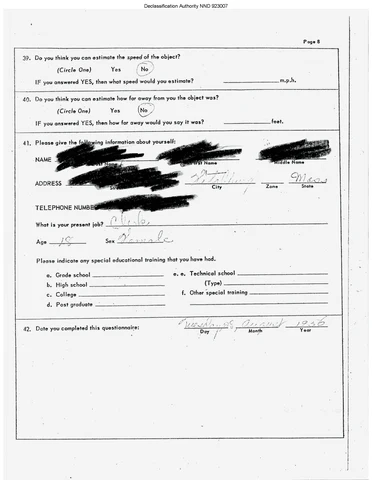 Declassification Authority NND 923007
Page 8
39. Do you think you can estimate the speed of the object?
(Circle One) Yes No
IF you answered YES, then what speed would you estimate? m.p.h.
40. Do you think you can estimate how far away from you the object was?
(Circle One) Yes No
IF you answered YES, then how far away would you say it was? feet.
41. Please give the following information about yourself:
NAME
Name Middle Name
ADDRESS Mass
City Zone State
TELEPHONE NUMBE
What is your present job? Clerk
Age 18 Sex Female
Please indicate any special educational training that you have had.
a. Grade school e. e. Technical school
b. High school (Type)
c. College f. Other special training
d. Post graduate
42. Date you completed this questionnaire: August
Day Month Year